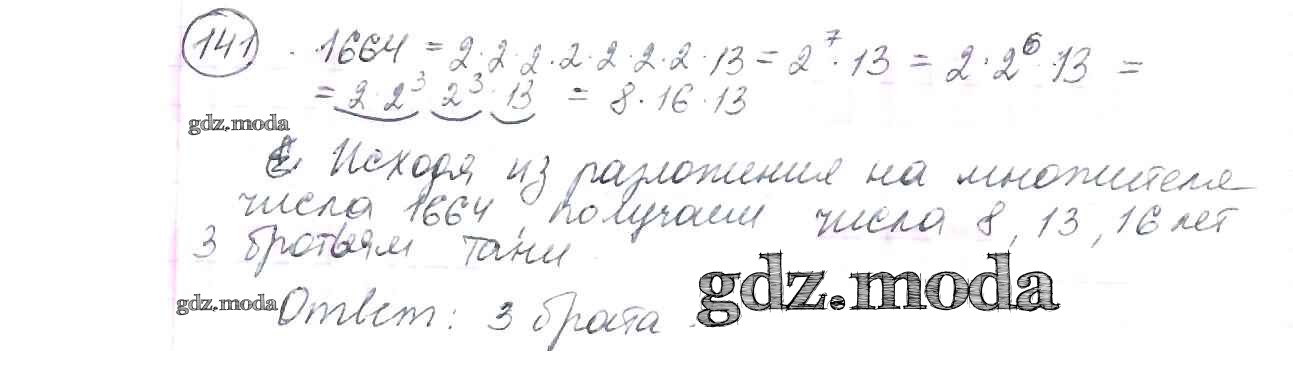 141 . 1664 = 2·2·2·2·2·2·2·13 = 2⁷·13 = 2·2⁶·13 =
= 2·2³ 2³·13 = 8·16·13
gdz.moda
Исходя из разложения на множителя
числа 1664, получаем числа 8, 13, 16 лет
3 братьям Тани
gdz.moda
gdz.moda
Ответ: 3 брата.